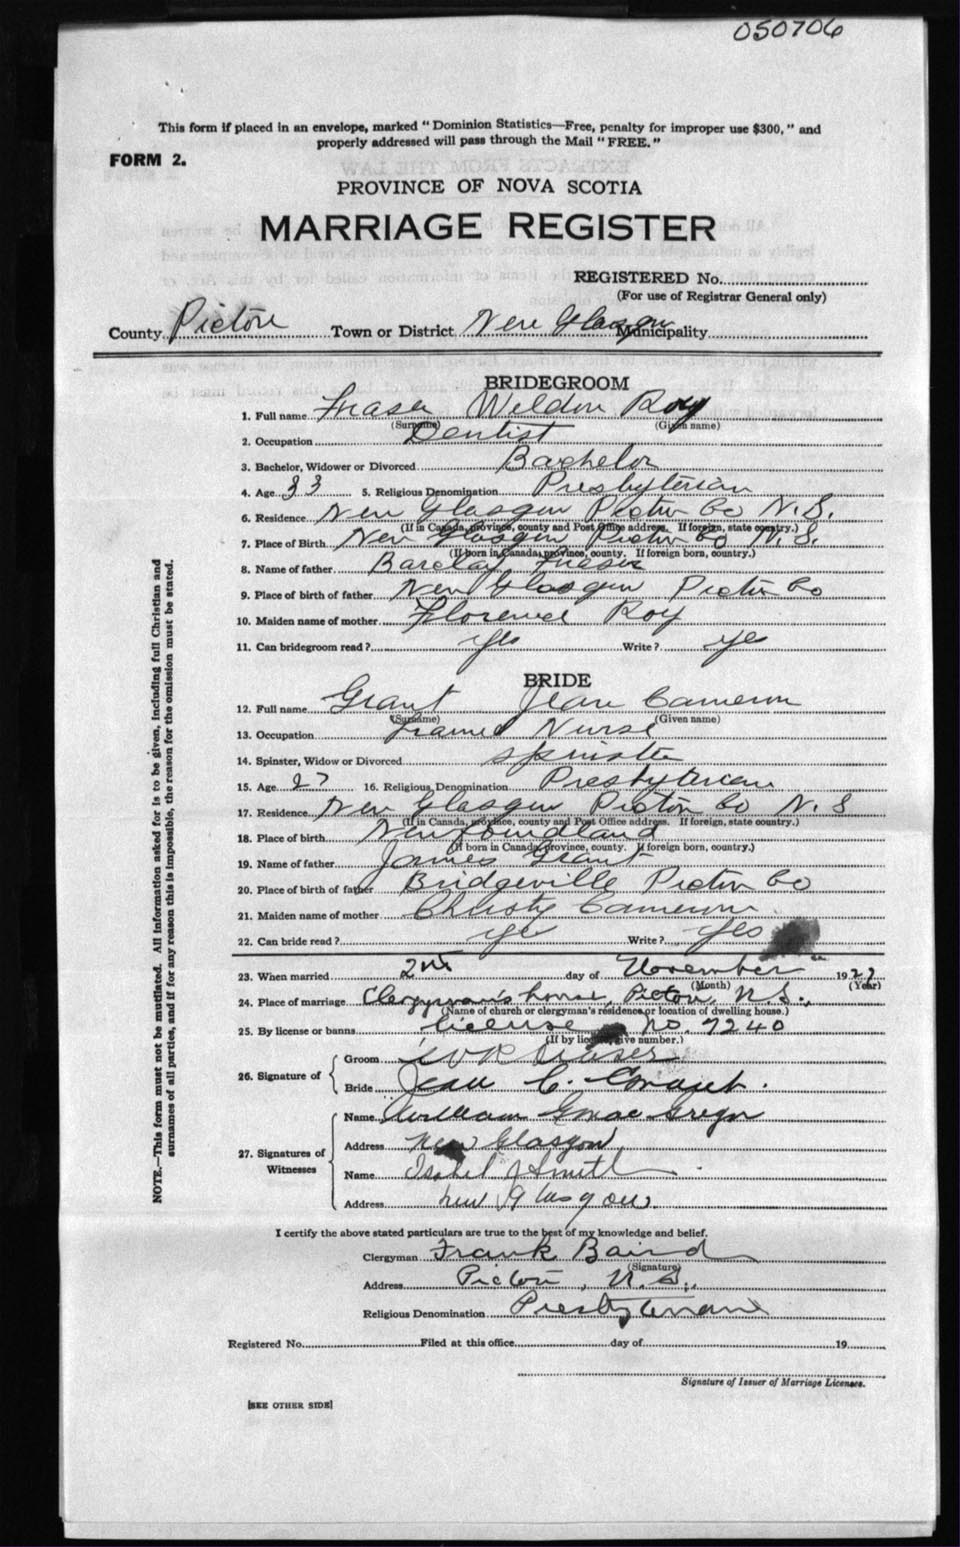 050706
This form if placed in an envelope, marked "Dominion Statistics—Free, penalty for improper use $300," and
properly addressed will pass through the Mail "FREE."
FORM 2.
PROVINCE OF NOVA SCOTIA
MARRIAGE REGISTER
REGISTERED No.
(For use of Registrar General only)
County Pictou Town or District New Glasgow Municipality
BRIDEGROOM
1. Full name Fraser Weldon Roy
(Surname) (Given name)
2. Occupation Dentist
3. Bachelor, Widower or Divorced Bachelor
4. Age 33 5. Religious Denomination Presbyterian
6. Residence New Glasgow Pictou Co N.S.
(If in Canada, province, county and Post Office address. If foreign, state country.)
7. Place of Birth New Glasgow Pictou Co N.S.
(If born in Canada, province, county. If foreign born, country.)
8. Name of father Barclay Fraser
9. Place of birth of father New Glasgow Pictou Co
10. Maiden name of mother Florence Roy
11. Can bridegroom read? yes Write? yes
BRIDE
12. Full name Grant Jean Cameron
(Surname) (Given name)
13. Occupation Trained Nurse
14. Spinster, Widow or Divorced Spinster
15. Age 27 16. Religious Denomination Presbyterian
17. Residence New Glasgow Pictou Co N.S
(If in Canada, province, county and Post Office address. If foreign, state country.)
18. Place of birth Newfoundland
(If born in Canada, province, county. If foreign born, country.)
19. Name of father James Grant
20. Place of birth of father Bridgeville Pictou Co
21. Maiden name of mother Christy Cameron
22. Can bride read? yes Write? yes
23. When married 2nd day of November 1927
(Month) (Year)
24. Place of marriage Clergyman's house, Pictou, N.S.,
(Name of church or clergyman's residence or location of dwelling house.)
25. By license or banns license No. 7240
(If by license, give number.)
26. Signature of Groom W R Fraser
Bride Jean C. Grant.
27. Signatures of Witnesses Name William G MacGregor
Address New Glasgow
Name Isabel J Smith
Address New Glasgow.
I certify the above stated particulars are true to the best of my knowledge and belief.
Clergyman Frank Baird
(Signature)
Address Pictou, N.S.,
Religious Denomination Presbyterian
Registered No. Filed at this office day of 19
Signature of Issuer of Marriage Licenses.
[SEE OTHER SIDE]
NOTE.—This form must not be mutilated. All information asked for is to be given, including full Christian and
surnames of all parties, and if for any reason this is impossible, the reason for the omission must be stated.